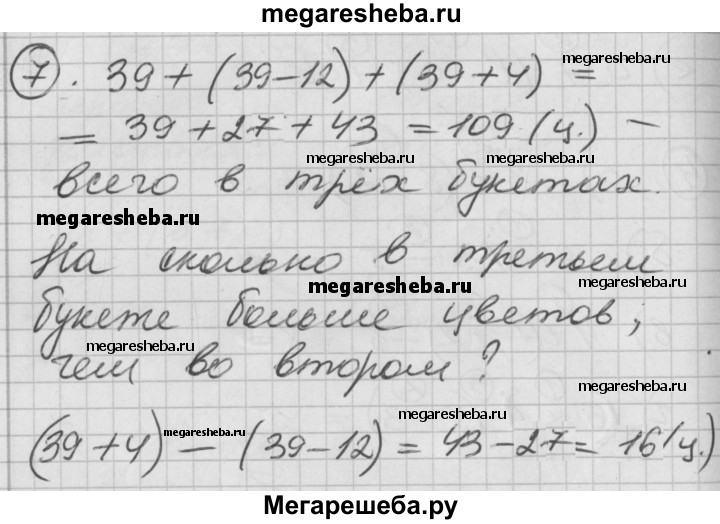 megaresheba.ru
7. 39 + (39 - 12) + (39 + 4) =
megaresheba.ru
megaresheba.ru
= 39 + 27 + 43 = 109 (ц.) —
megaresheba.ru
megaresheba.ru
всего в трёх букетах.
megaresheba.ru
На сколько в третьем
megaresheba.ru
букете больше цветов,
megaresheba.ru
megaresheba.ru
чем во втором?
megaresheba.ru
megaresheba.ru
megaresheba.ru
(39 + 4) — (39 - 12) = 43 - 27 = 16 (ц.)
Мегарешеба.ру